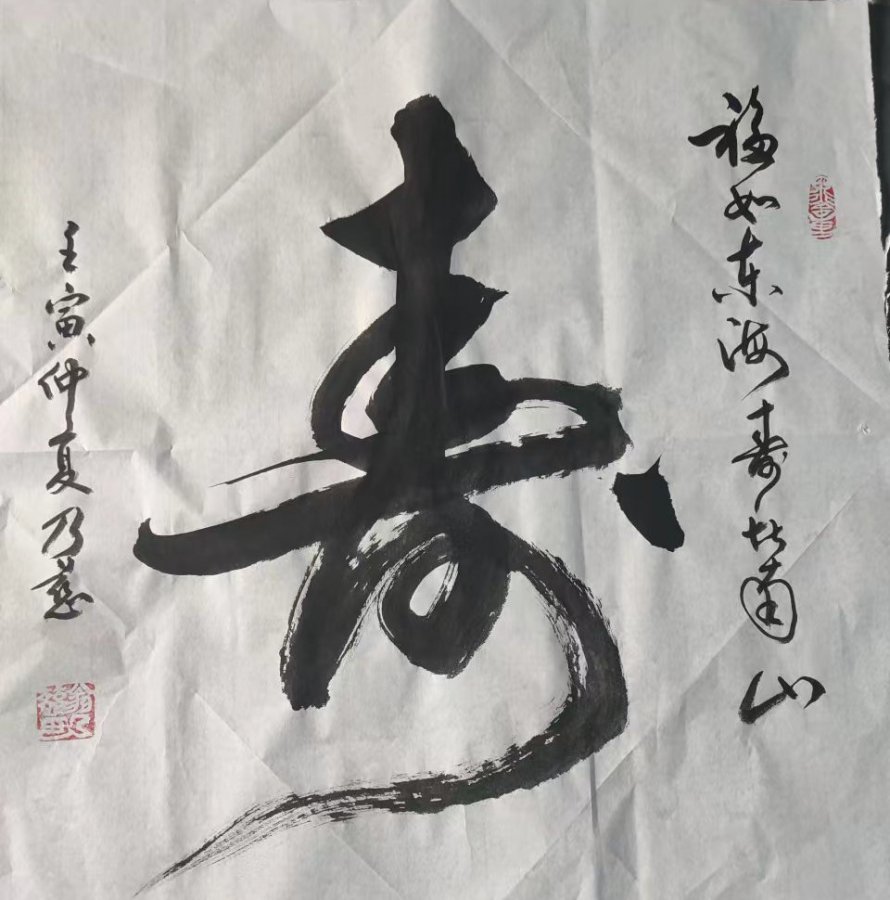 福如东海寿比南山
寿
壬寅仲夏乃慈